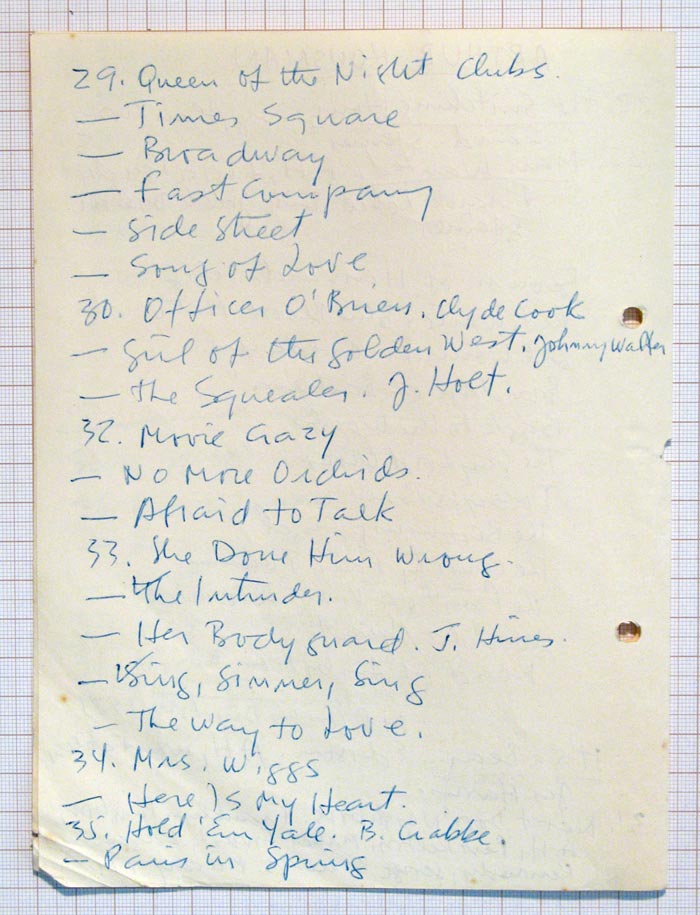 29. Queen of the Night Clubs.
— Times Square
— Broadway
— Fast Company
— Side Street
— Song of Love
30. Officer O'Brien. Clyde Cook
— Girl of the Golden West. Johnny Walker
— The Squealer. J. Holt.
32. Movie Crazy
— No More Orchids.
— Afraid to Talk
33. She Done Him Wrong.
— The Intruder.
— Her Bodyguard. J. Hines.
— Sing, Sinner, Sing
— The Way to Love.
34. Mrs. Wiggs
— Here Is My Heart.
35. Hold 'Em Yale. B. Crabbe.
— Paris in Spring